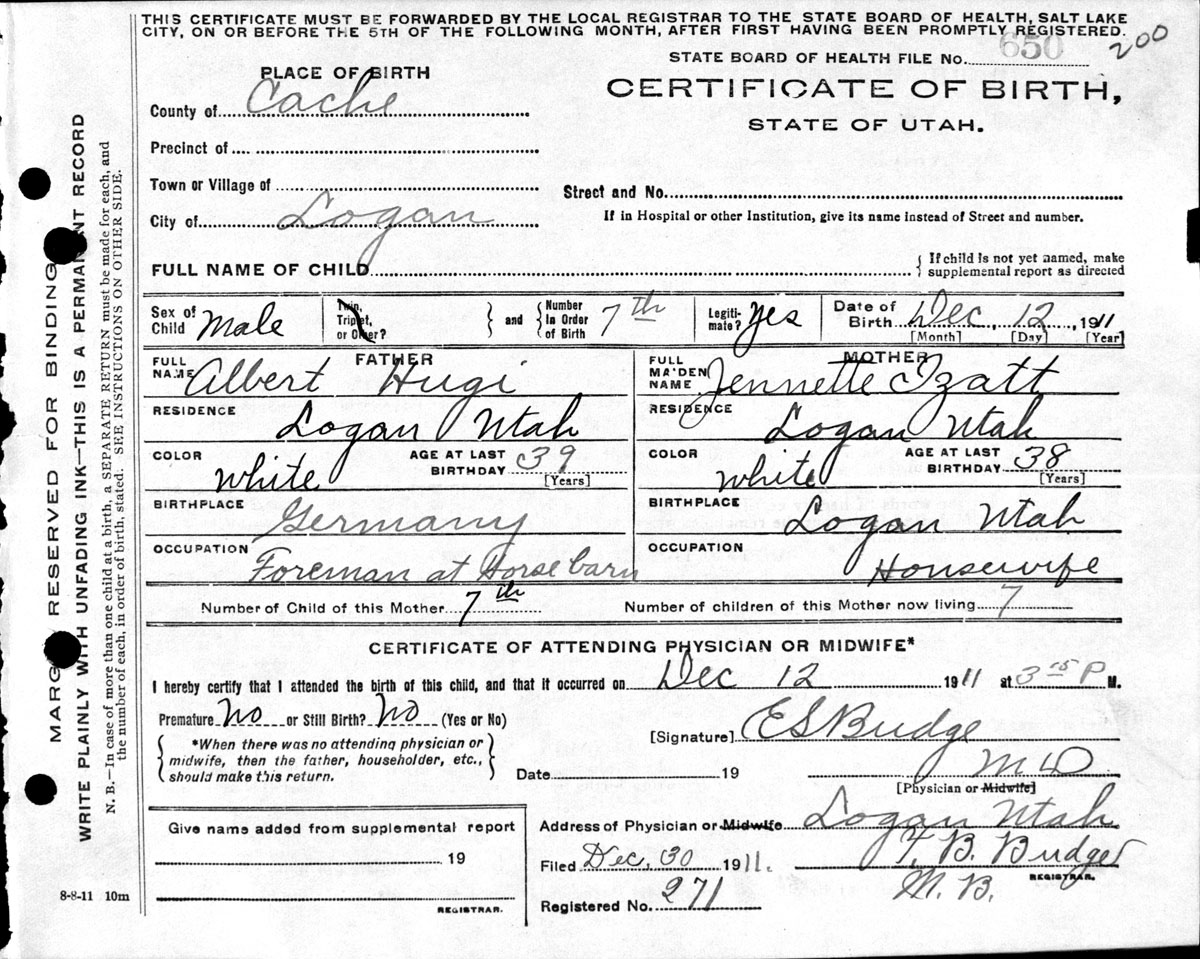 THIS CERTIFICATE MUST BE FORWARDED BY THE LOCAL REGISTRAR TO THE STATE BOARD OF HEALTH, SALT LAKE
CITY, ON OR BEFORE THE 5TH OF THE FOLLOWING MONTH, AFTER FIRST HAVING BEEN PROMPTLY REGISTERED.
200
STATE BOARD OF HEALTH FILE NO. 650
CERTIFICATE OF BIRTH,
STATE OF UTAH.
PLACE OF BIRTH
County of Cache
Precinct of
Town or Village of
City of Logan
Street and No.
If in Hospital or other Institution, give its name instead of Street and number.
FULL NAME OF CHILD
{ If child is not yet named, make
supplemental report as directed
Sex of Child Male
Twin, Triplet, or Other? } and { Number In Order of Birth 7th
Legitimate? Yes
Date of Birth Dec, 12, 1911
[Month] [Day] [Year]
FATHER
FULL NAME Albert Hugi
RESIDENCE
Logan Utah
COLOR White
AGE AT LAST BIRTHDAY 39
[Years]
BIRTHPLACE
Germany
OCCUPATION
Foreman at Horse barn
MOTHER
FULL MAIDEN NAME Jennette Izatt
RESIDENCE
Logan Utah
COLOR White
AGE AT LAST BIRTHDAY 38
[Years]
BIRTHPLACE
Logan Utah
OCCUPATION
Housewife
Number of Child of this Mother 7th
Number of children of this Mother now living 7
CERTIFICATE OF ATTENDING PHYSICIAN OR MIDWIFE*
I hereby certify that I attended the birth of this child, and that it occurred on Dec 12 1911 at 3 P M.
Premature No or Still Birth? No (Yes or No)
{ *When there was no attending physician or
midwife, then the father, householder, etc.,
should make this return. }
[Signature] E S Budge
Date 19
M D
[Physician or Midwife]
Address of Physician or Midwife Logan Utah
Filed Dec, 30 1911.
T. B. Budge
REGISTRAR.
M. B.
Registered No. 271
Give name added from supplemental report
19
REGISTRAR.
8-8-11 10m
MARGIN RESERVED FOR BINDING
WRITE PLAINLY WITH UNFADING INK—THIS IS A PERMANENT RECORD
N. B.—In case of more than one child at a birth, a SEPARATE RETURN must be made for each, and
the number of each, in order of birth, stated. SEE INSTRUCTIONS ON OTHER SIDE.